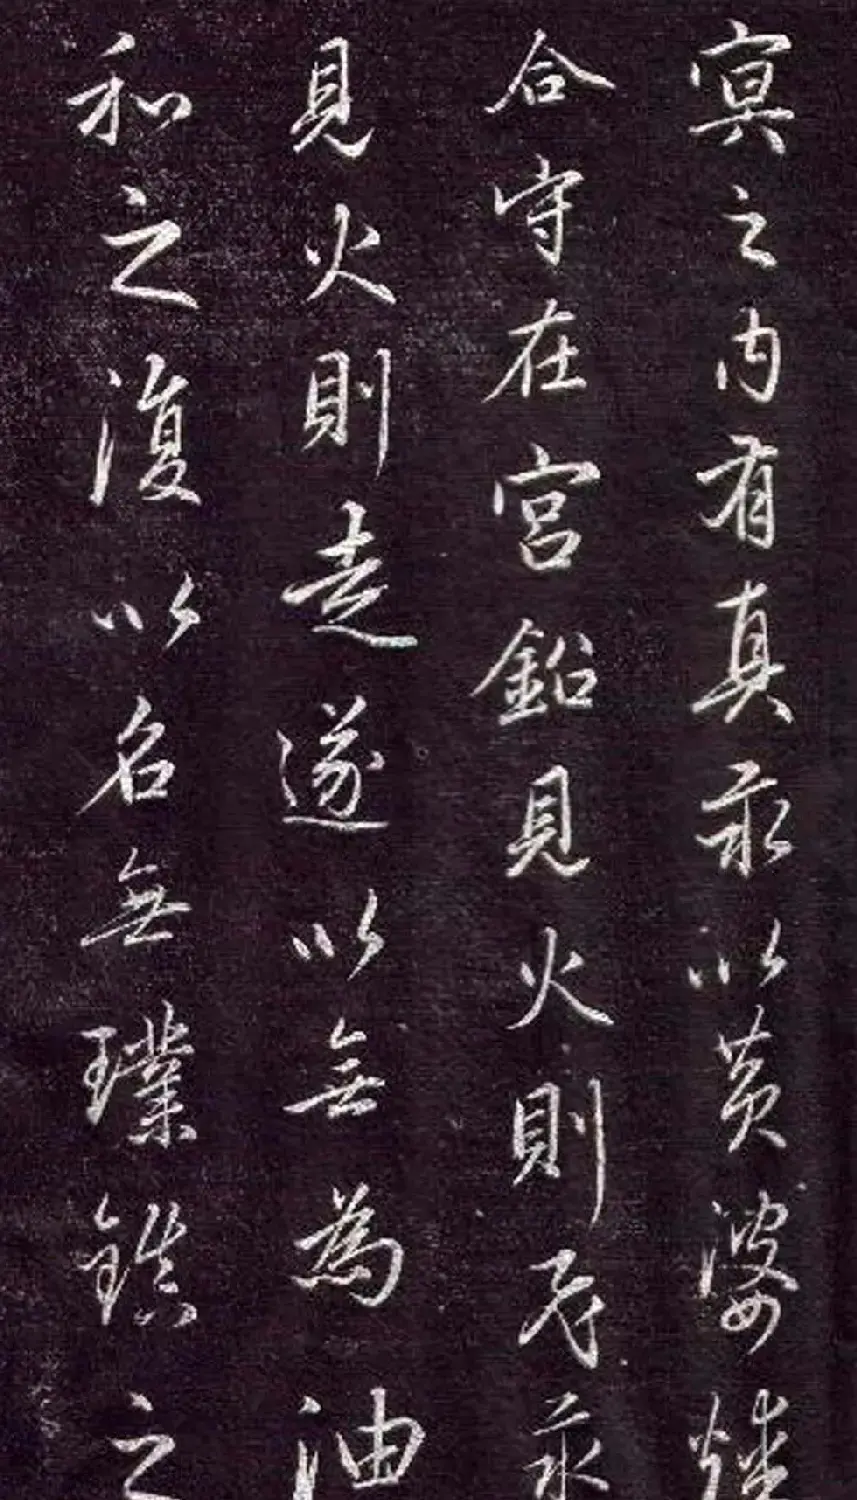 冥之内有真汞以黄婆
合守在宮鉛見火則飛汞
見火則走遂以無為油
和之復以名無璞鎮之